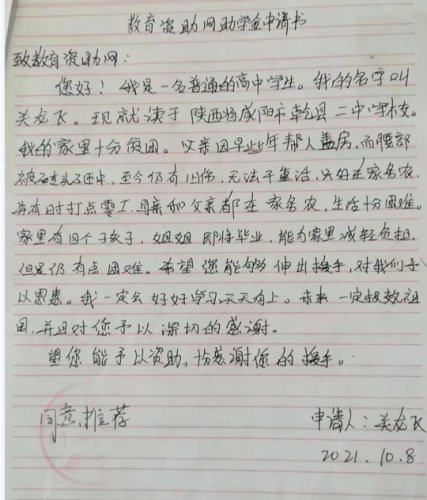 教育资助网助学金申请书
致教育资助网：
您好！我是一名普通的高中学生。我的名字叫
关龙飞。现就读于陕西省咸阳市乾县二中学校。
我的家里十分贫困。父亲因早些年帮人盖房，而腰部
被石头砸中，至今仍有旧伤，无法干重活，只好在家务农，
并有时打点零工，母亲和父亲都在家务农，生活十分困难。
家里有四个孩子，姐姐即将毕业，能为家里减轻负担，
但是仍有点困难。希望您能够伸出援手，对我们予
以恩惠。我一定会好好学习天天向上。未来一定报效祖
国，并且对您予以深切的感谢。
望您能予以资助，感谢您的援手。
同意推荐
申请人：关龙飞
2021.10.8